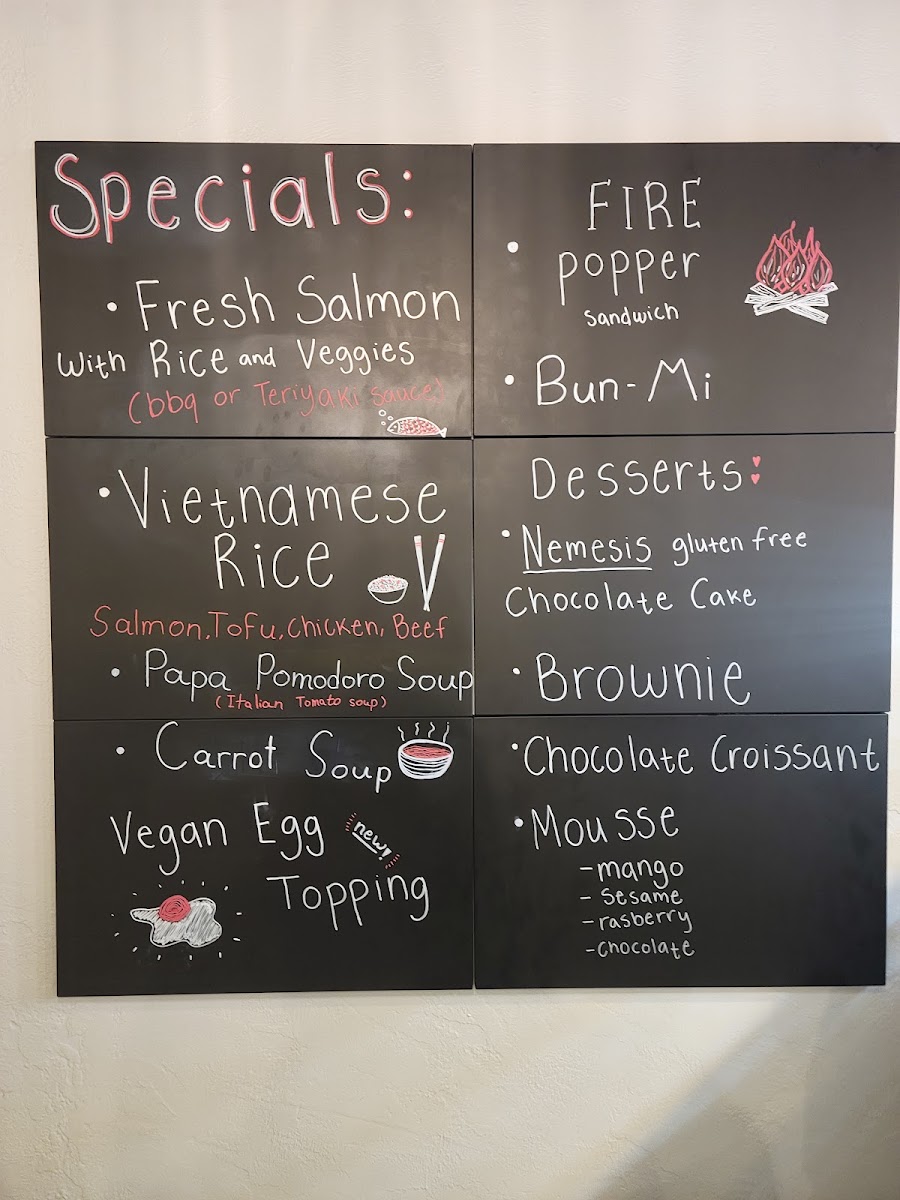 Specials:
• Fresh Salmon
With Rice and Veggies
(bbq or Teriyaki sauce)
• Vietnamese
Rice
Salmon, Tofu, Chicken, Beef
• Papa Pomodoro Soup
(Italian Tomato soup)
• Carrot Soup
Vegan Egg
new!
Topping
FIRE
• popper
sandwich
• Bun-Mi
Desserts:
• Nemesis gluten free
Chocolate Cake
• Brownie
• Chocolate Croissant
• Mousse
- mango
- sesame
- rasberry
- chocolate